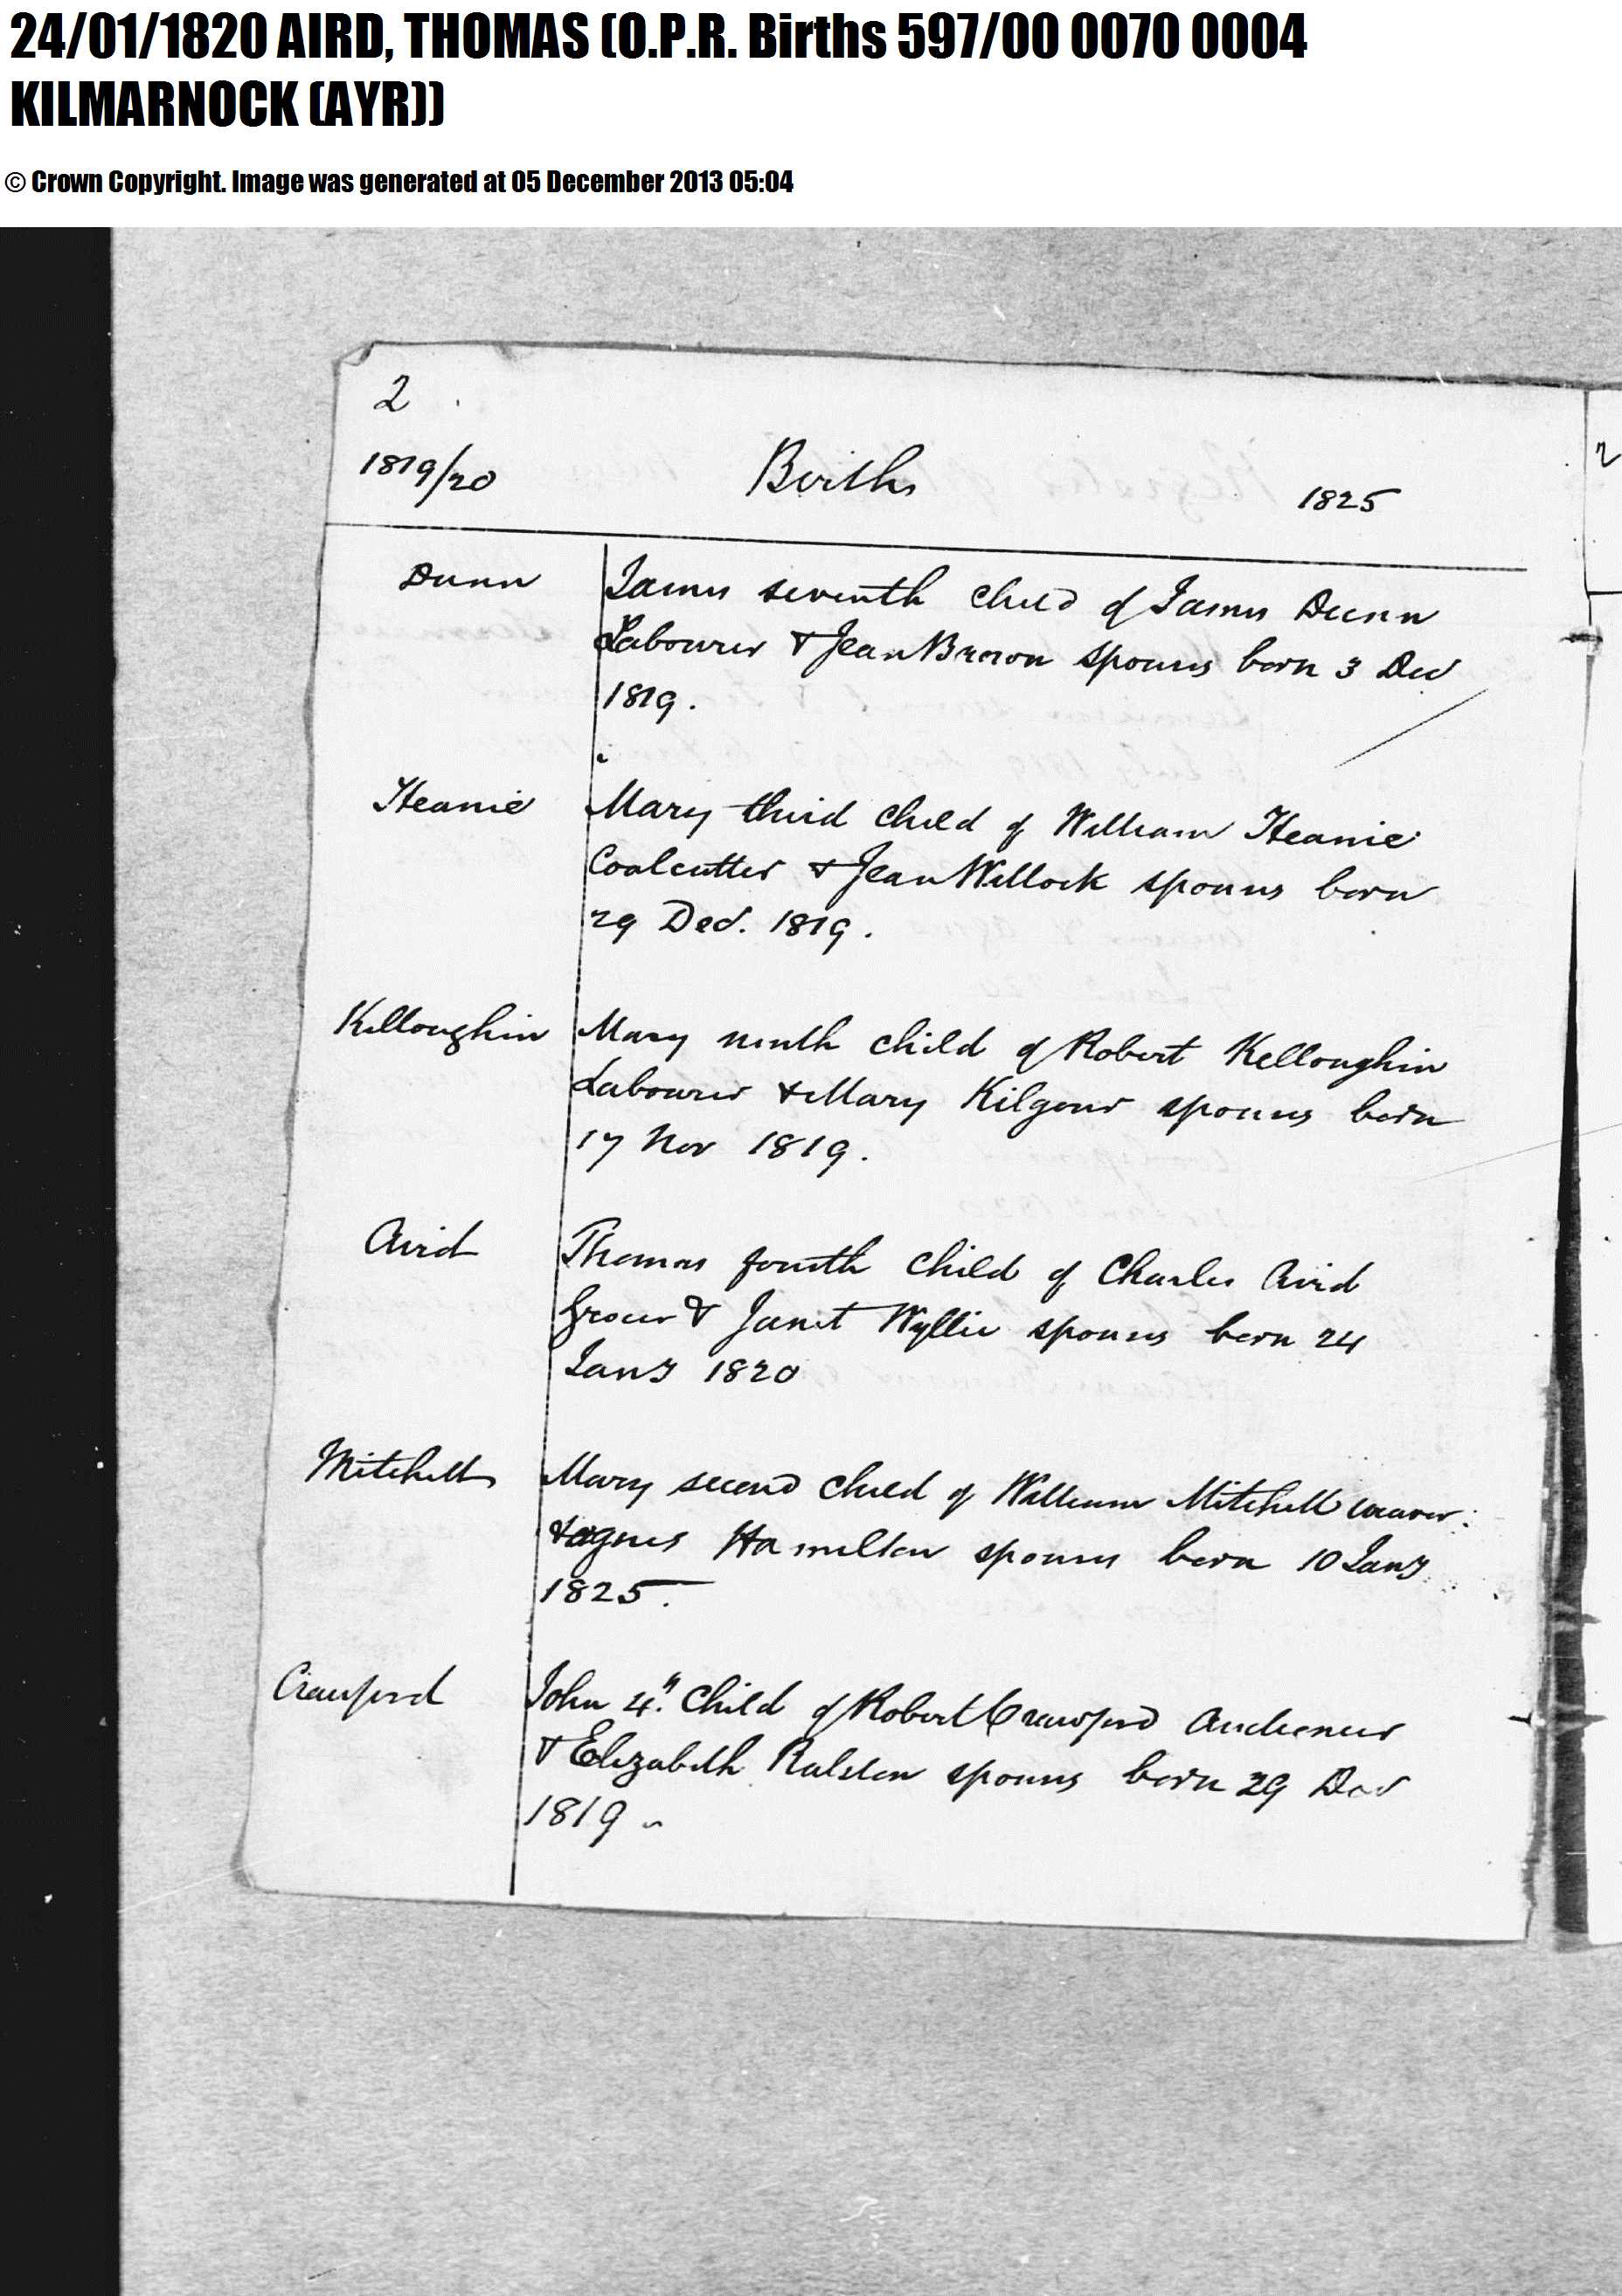 24/01/1820 AIRD, THOMAS (O.P.R. Births 597/00 0070 0004
KILMARNOCK (AYR))
© Crown Copyright. Image was generated at 05 December 2013 05:04
2
1819/20 Births 1825
Dunn James seventh child of James Dunn
Labourer & Jean Brown spouses born 3 Dec
1819.
Heanie Mary third child of William Heanie
Coalcutter & Jean Willock spouses born
29 Dec. 1819.
Killoughin Mary ninth child of Robert Kelloughin
Labourer & Mary Kilgour spouses born
17 Nov 1819.
Aird Thomas fourth child of Charles Aird
Grocer & Janet Wyllie spouses born 24
Jany 1820
Mitchell Mary second child of William Mitchell weaver
& Agnes Hamilton spouses born 10 Jany
1825.
Crawford John 4" child of Robert Crawford Auctioneer
& Elizabeth Ralston spouses born 29 Dec
1819
2